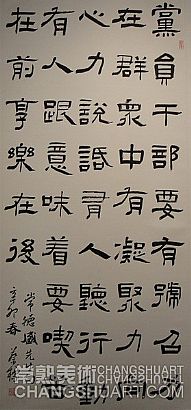 黨員干部要有號召
在群衆中有凝聚力
心力說話有人聽行動
有人跟意味着要喫
在前享樂在後
常德盛先
辛卯春
常熟美術
CHANGSHUART
CHANGSHUART